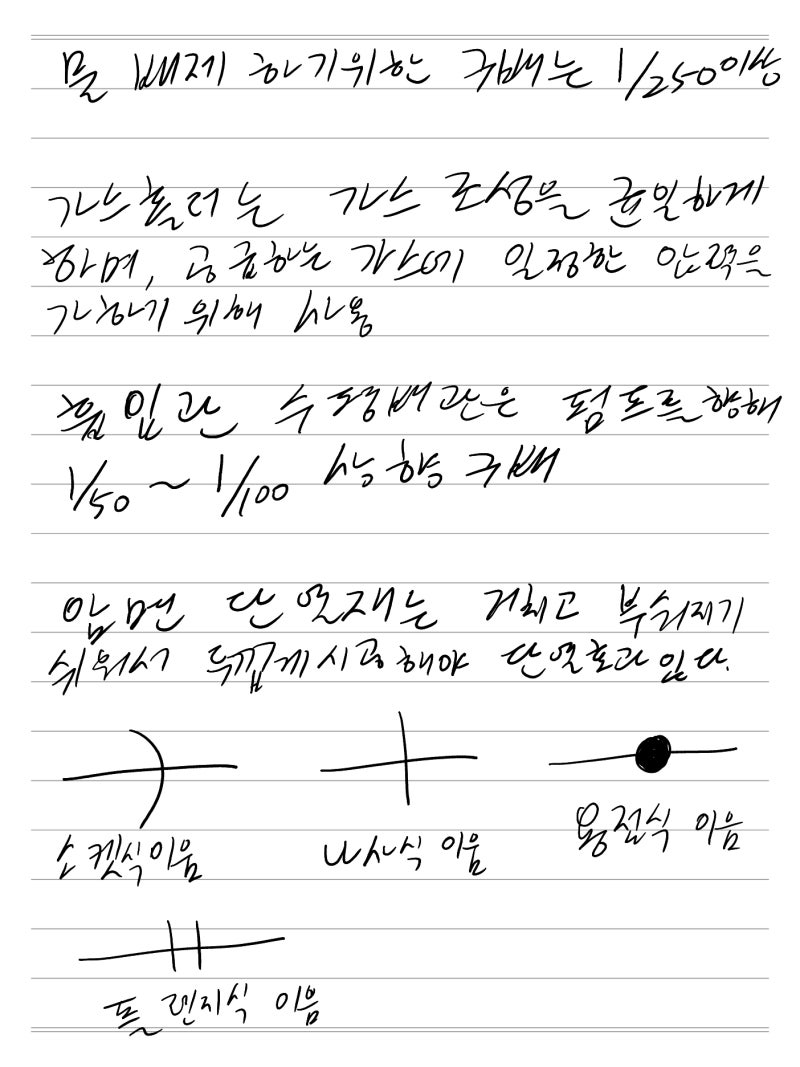 물 배제 하기위한 구배는 1/250이상
가스홀더는 가스 조성을 균일하게
하며, 공급하는 가스에 일정한 압력을
가하기 위해 사용
흡입관 수평배관은 펌프를 향해
1/50 ~ 1/100 상향 구배
암면 단열재는 거칠고 부숴지기
쉬워서 두껍게 시공해야 단열효과 있다.
소켓식이음 나사식 이음 용접식 이음
플랜지식 이음